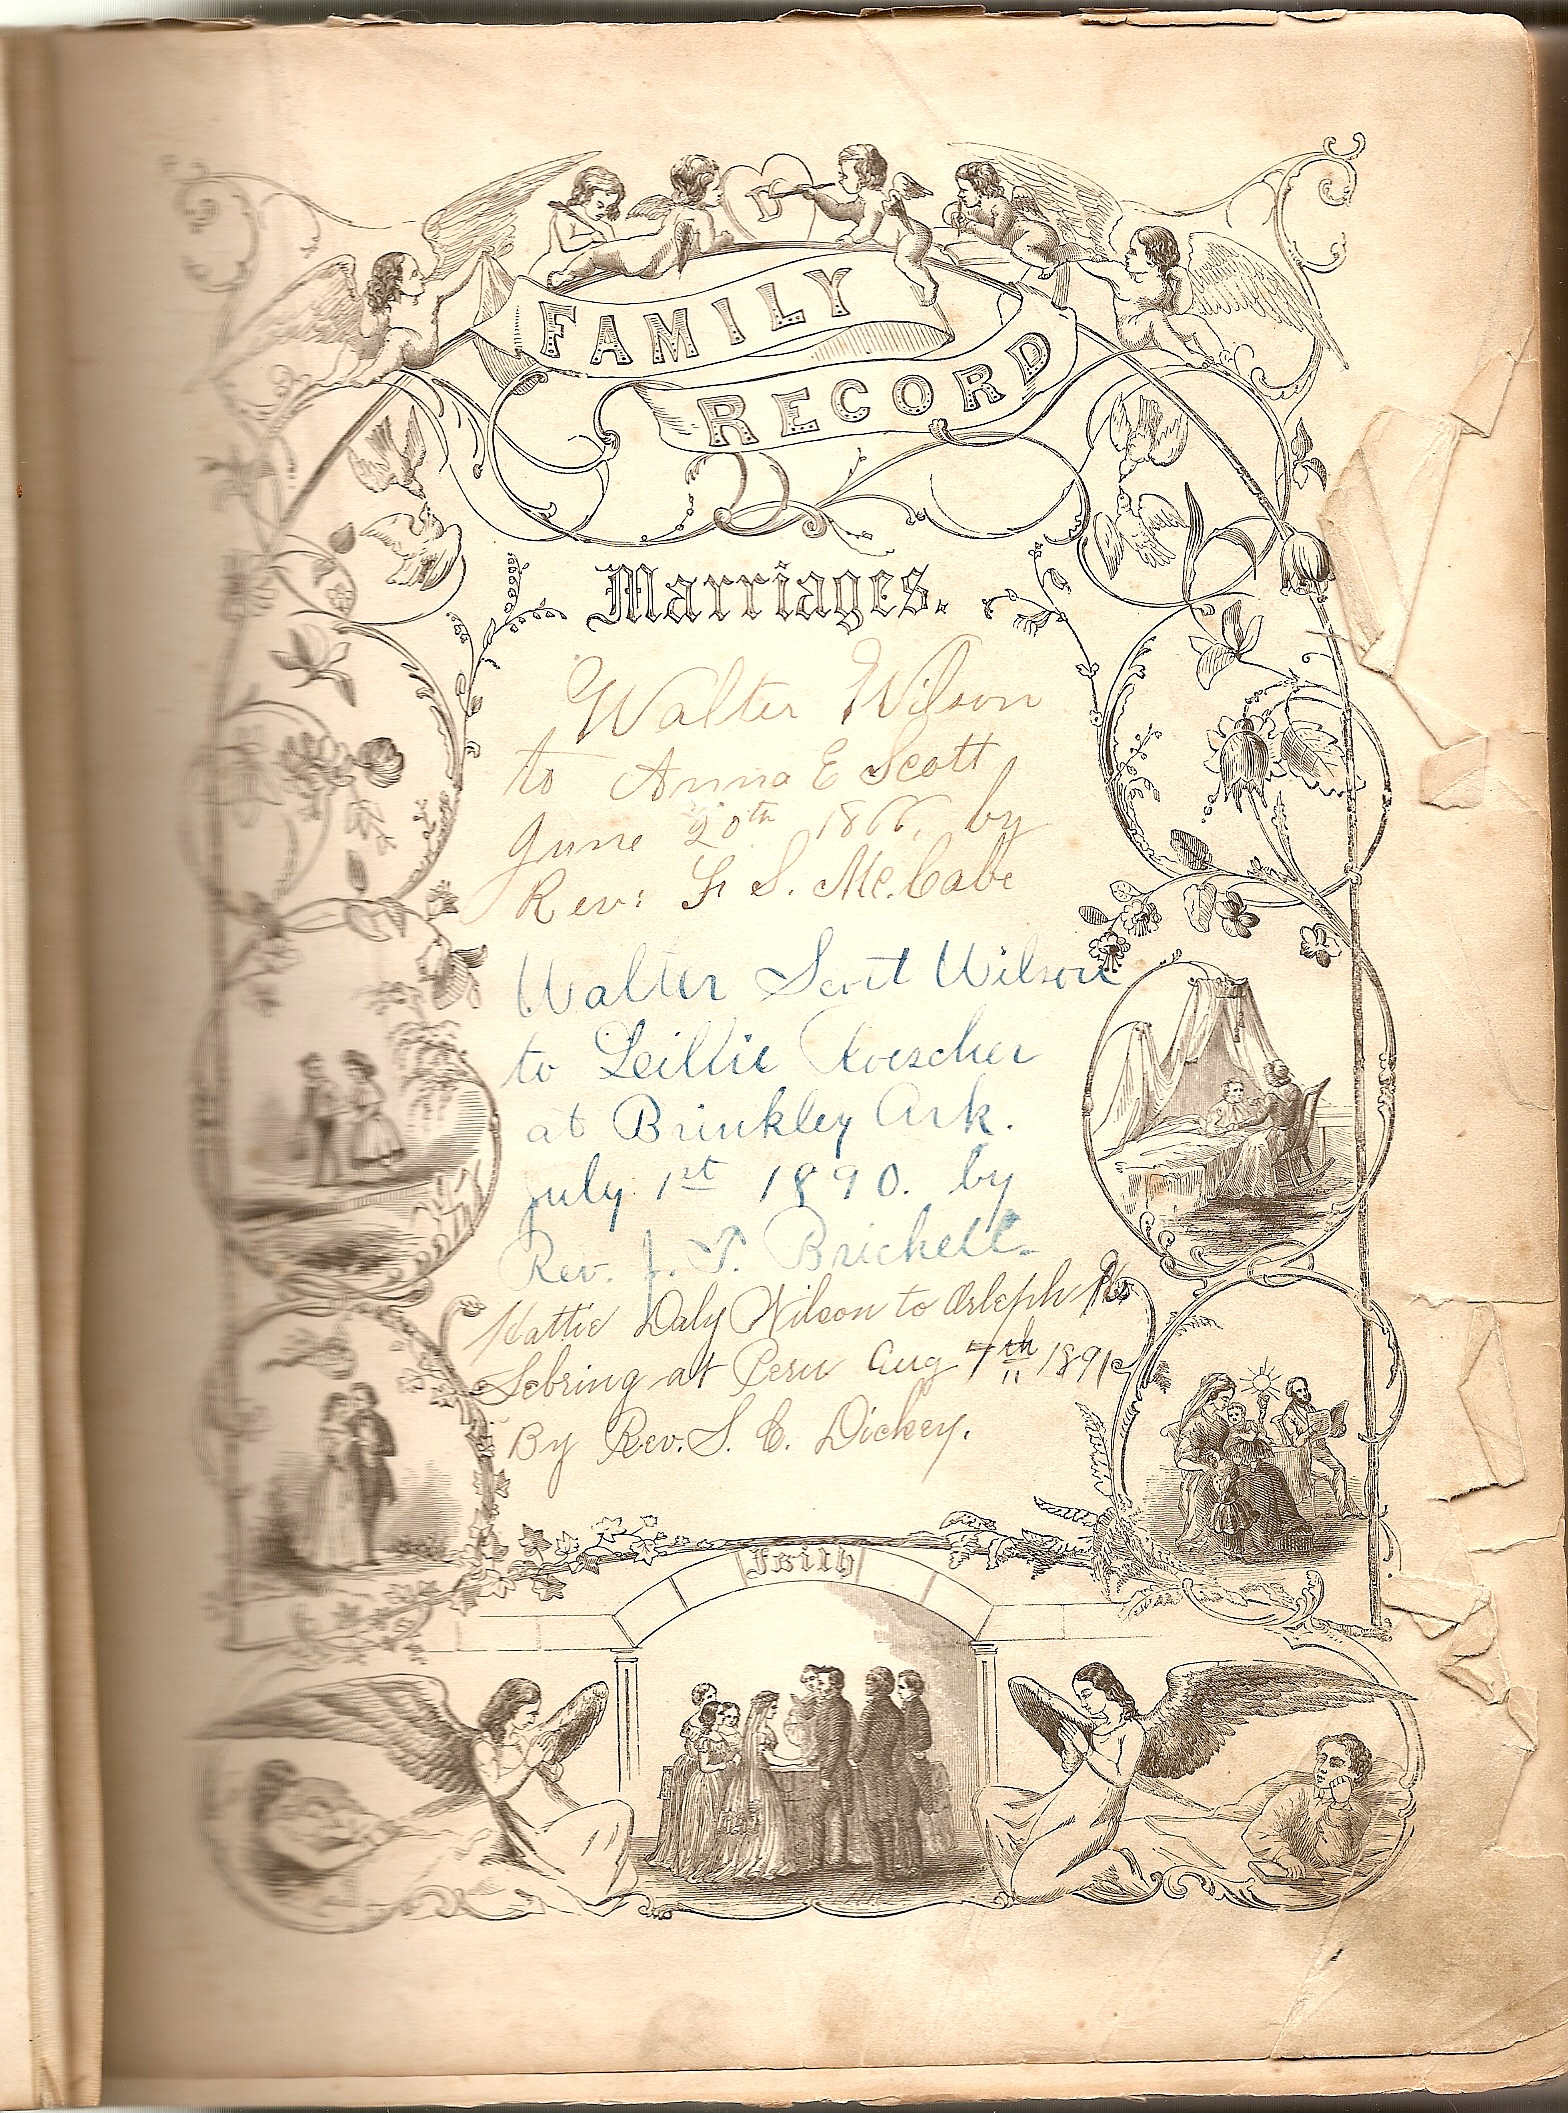 D
FAMILY
RECORD
Marriages.
Walter Wilson
to Anna E Scott
June 20th 1866, by
Rev: F S. Mc.Cabe
Walter Scott Wilson
to Leillie
at Brinkley Ark.
July 1st 1890. by
Rev. J. T. Brickell.
Hattie Daly Wilson to
Sebring at Peru Aug 7th 1891
By Rev. S. C. Dickey.
Faith